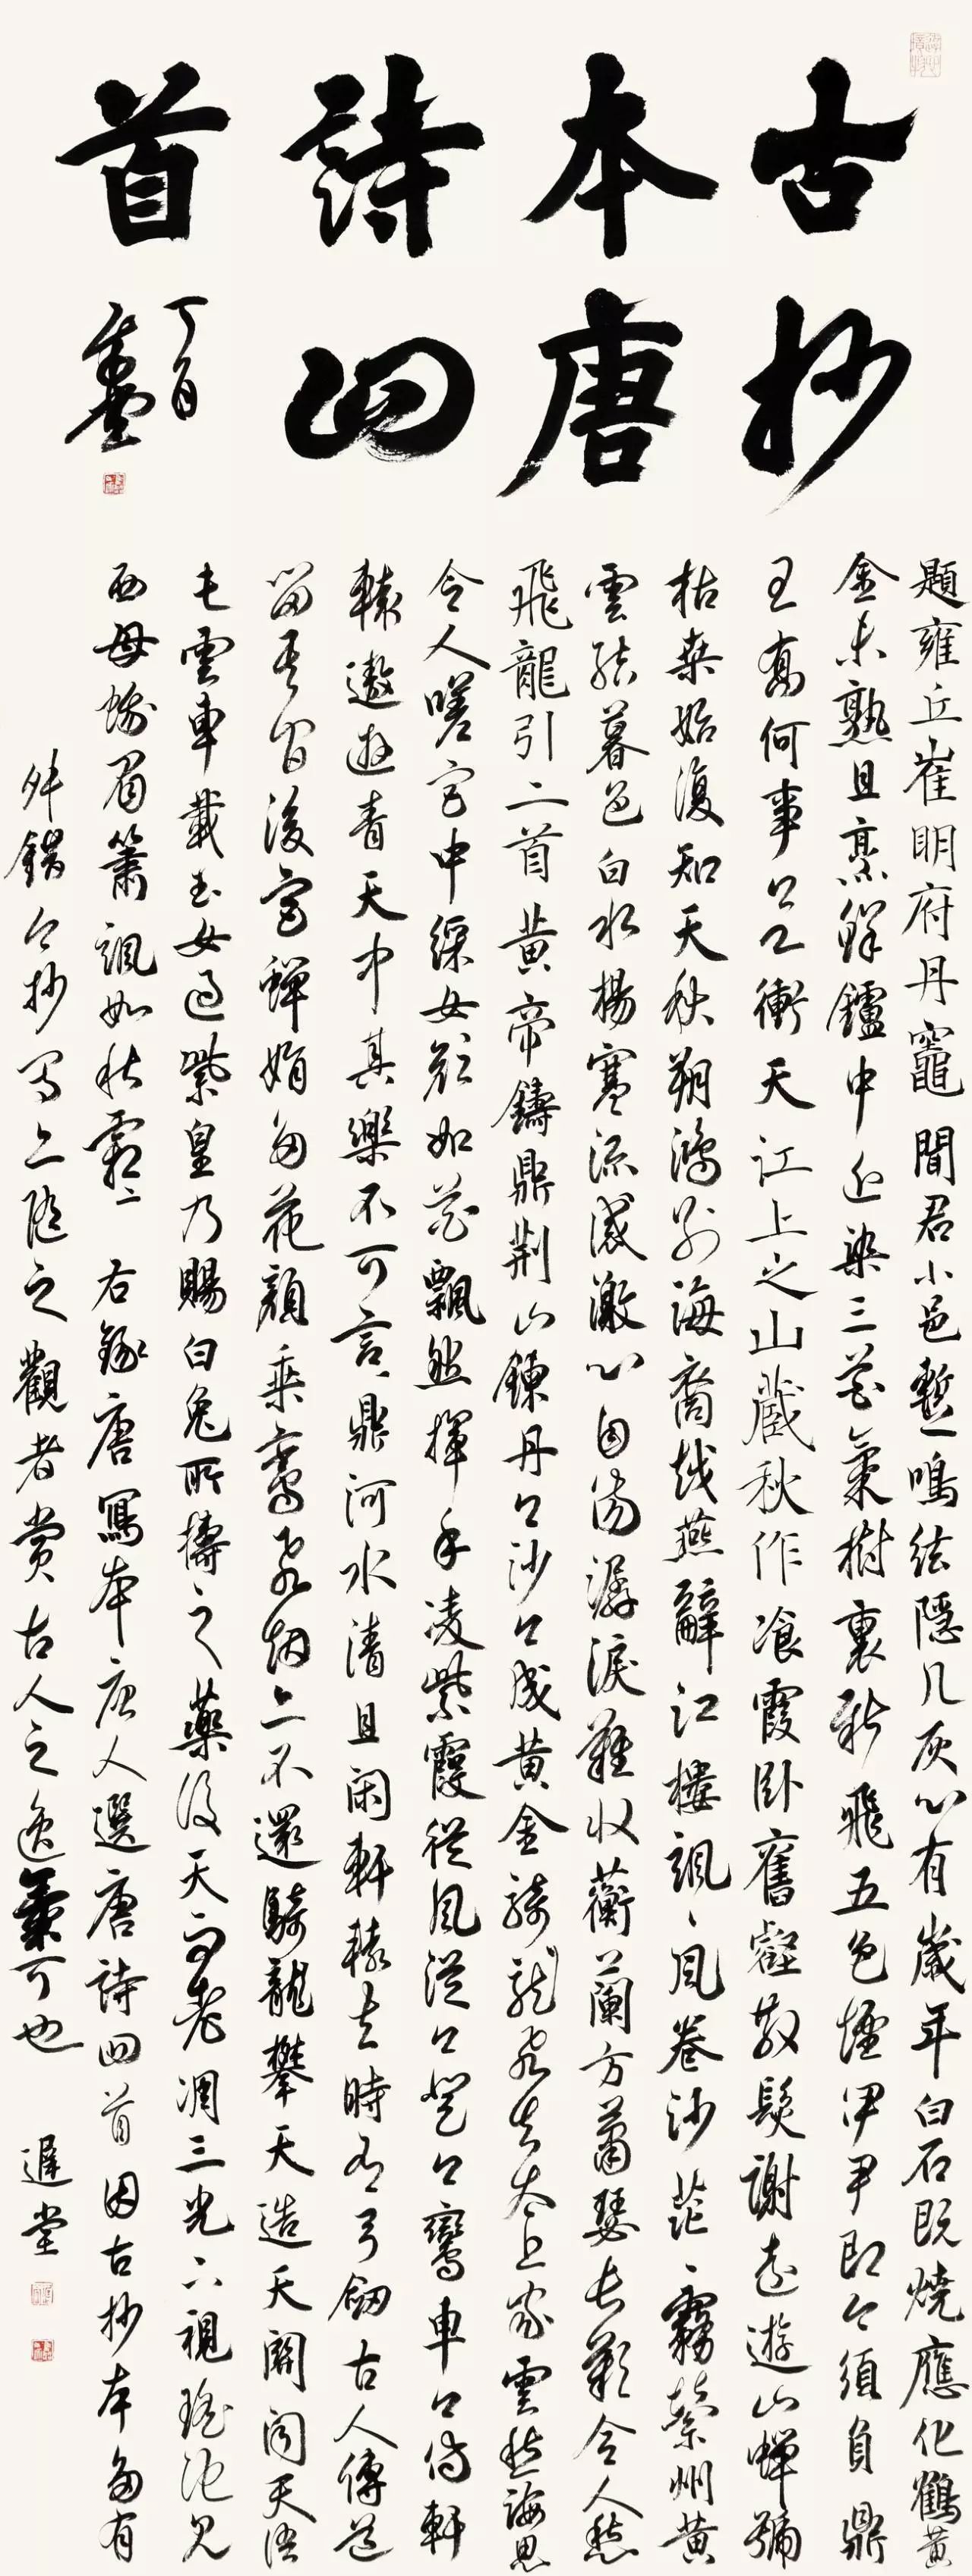 古抄
本唐
詩四
首
丁酉
遲堂
題雍丘崔明府丹竈 聞君小邑暫鳴絃隱几灰心有歲年白石既燒應化鶴黃
金未熟且烹鮮鑪中近染三花氣樹裏新飛五色煙伊尹即今須負鼎
王喬何事衝天 江上之山藏秋作 飡霞臥舊壑散髮謝遠遊山蟬號
枯桑始復知天秋朔鴻別海裔越燕辭江樓颯々風卷沙茫々霧縈州黃
雲結暮色白水楊寒流感激心自傷潺湲淚難收蘅蘭方蕭瑟長歎令人愁
飛龍引二首 黃帝鑄鼎荊山鍊丹々沙々成黃金騎龍飛去太上家雲愁海思
令人嗟宮中綵女顏如花飄然揮手凌紫霞從風縱々登々鸞車々侍軒
轅遨遊青天中其樂不可言 鼎河水清且閑軒轅去時有弓劔古人傳道
留其間後宮嬋娟多花顏乘鸞飛煙亦不還騎龍攀天造天關聞天語
屯雲車載玉女過紫皇乃賜白兔所擣之藥後天而老凋三光下視瑤池見
西母蛾眉蕭颯如秋霜 右錄唐寫本唐人選唐詩四首因古抄本多有
舛錯今抄寫亦隨之觀者賞古人之逸氣可也 遲堂